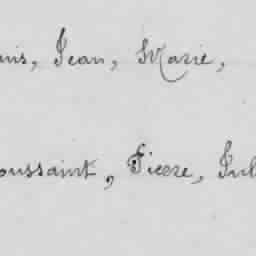 uis, Jean, Marie,
oussaint, Pierre, Jul